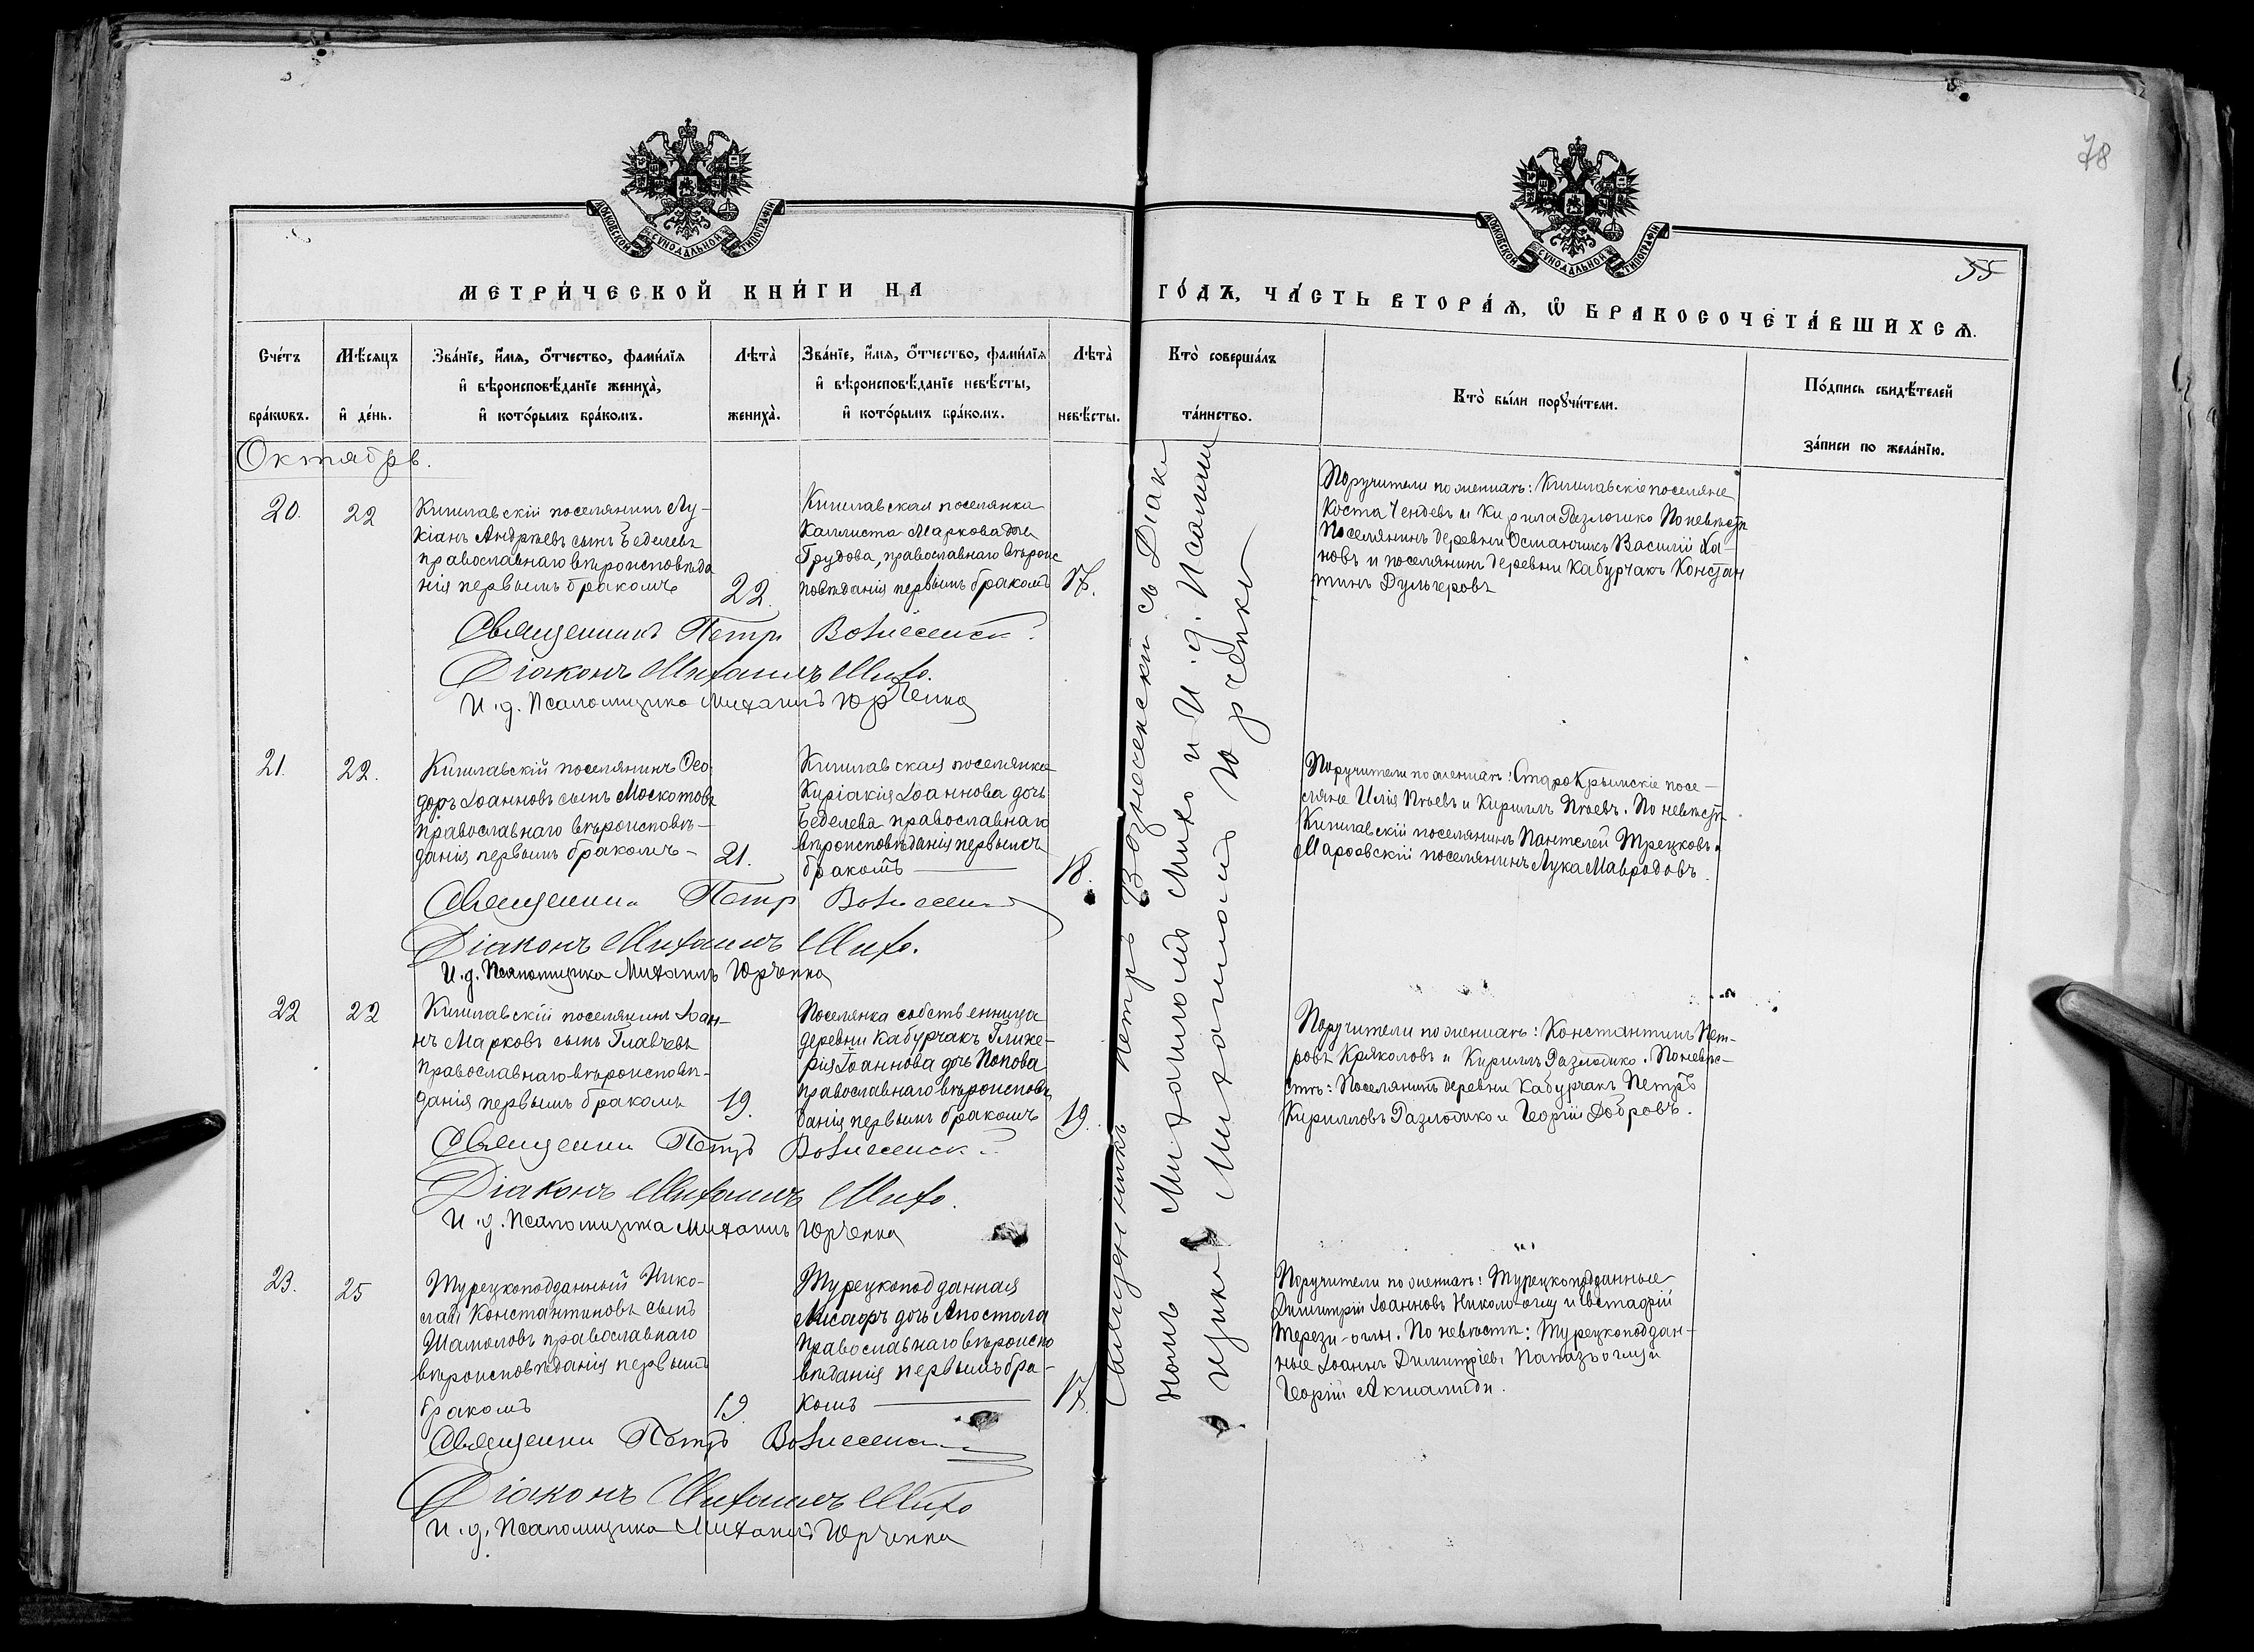 78
55
МОСКОВСКОЙ СѴНОДАЛЬНОЙ ТИПОГРАФІИ
МОСКОВСКОЙ СѴНОДАЛЬНОЙ ТИПОГРАФІИ
МЕТРИ́ЧЕСКОЙ КНИ́ГИ НА
ГО́ДЪ, ЧА́СТЬ ВТОРА́Ѧ, Ѡ БРАКОСОЧЕТА́ВШИХСѦ.
Сче́тъ бра́кѡвъ.
Мѣ́сяцъ и де́нь.
Зва́нїе, и́мѧ, о́тчество, фами́лїѧ и вѣроисповѣ́данїе жениха̀, и кото́рымъ бра́комъ.
Лѣта̀ жениха̀.
Зва́нїе, и́мѧ, о́тчество, фами́лїѧ и вѣроисповѣ́данїе невѣ́сты, и кото́рымъ бра́комъ.
Лѣта̀ невѣ́сты.
Кто̀ соверша́лъ та́инство.
Кто̀ бы́ли порꙋчи́тели.
По́дпись свидѣ́телей за́писи по жела́нїю.
Октябрь.
20.
22
Кишлавскій поселянинъ Лу-
кіанъ Андреевъ сынъ Беделевъ
православнаго вѣроисповѣда
нія первымъ бракомъ
22.
Кишлавская поселянка
Каллиста Маркова дочь
Грудова, православнаго вѣроис
повѣданія первымъ бракомъ
17.
Поручители по женихѣ: Кишлавскіе поселяне
Коста Чендевъ и Кирилл Разлогико По невѣстѣ
Поселянинъ деревни Османчикъ Василій Ка-
новъ и поселянинъ деревни Кабурчакъ Констан
тинъ Дульгеровъ
Священникъ Петръ Вознесенск
Діаконъ Михаилъ Михо.
И. д. Псаломщика Михаилъ Юрченко
21.
22.
Кишлавскій поселянинъ Ѳео-
доръ Іоанновъ сынъ Москотовъ
православнаго вѣроисповѣ-
данія первымъ бракомъ-
21.
Кишлавская поселянка
Киріакія Іоаннова дочь
Беделева православнаго
вѣроисповѣданія первымъ
бракомъ
18.
Поручители по женихѣ: СтароКрымскіе посе-
ляне Илія Пѣевъ и Кириллъ Пѣевъ. По невѣстѣ
Кишлавскій поселянинъ Пантелей Трецковъ и
Марѳовскій поселянинъ Лука Мавродовъ.
Священни Петр Вознесенск
Діаконъ Михаилъ Михо.
И. д. Псаломщика Михаилъ Юрченко
22
22
Кишлавскій поселянинъ Іоан-
нъ Марковъ сынъ Главчевъ
православнаго вѣроисповѣ-
данія первымъ бракомъ
19.
Поселянка собственница
деревни Кабурчакъ Глике-
рія Іоаннова дочь Попова
православнаго вѣроисповѣ
данія первымъ бракомъ
19.
Поручители по женихѣ: Константинъ Пет-
ровъ Кряколовъ и Кириллъ Разлогико. По невѣ-
стѣ: Поселянинъ деревни Кабурчакъ Петръ
Кирилловъ Разлогико и Георгій Добровъ.
Священни Петръ Вознесенск
Діаконъ Михаилъ Михо.
И. д. Псаломщика Михаилъ Юрченко
23.
25
Турецкоподданный Нико-
лай Константиновъ сынъ
Шамоловъ православнаго
вѣроисповѣданія первымъ
бракомъ
19.
Турецкоподданная
дочь Апостола
православнаго вѣроиспо
вѣданія первымъ бра-
комъ
17.
Поручители по женихѣ: Турецкоподданные
Димитрій Іоанновъ Никол-оглу и Евстафій
Терези-оглы. По невѣстѣ: Турецкоподдан-
ные Іоаннъ Димитріевъ Папазъ оглу и
Георгій
Священни Петръ Вознесенск
Діаконъ Михаилъ Михо
И. д. Псаломщика Михаилъ Юрченко
Священникъ Петръ Вознесенскій съ Діако
номъ Михаиломъ Михо и И. д. Псалом
щика Михаиломъ Юрченко